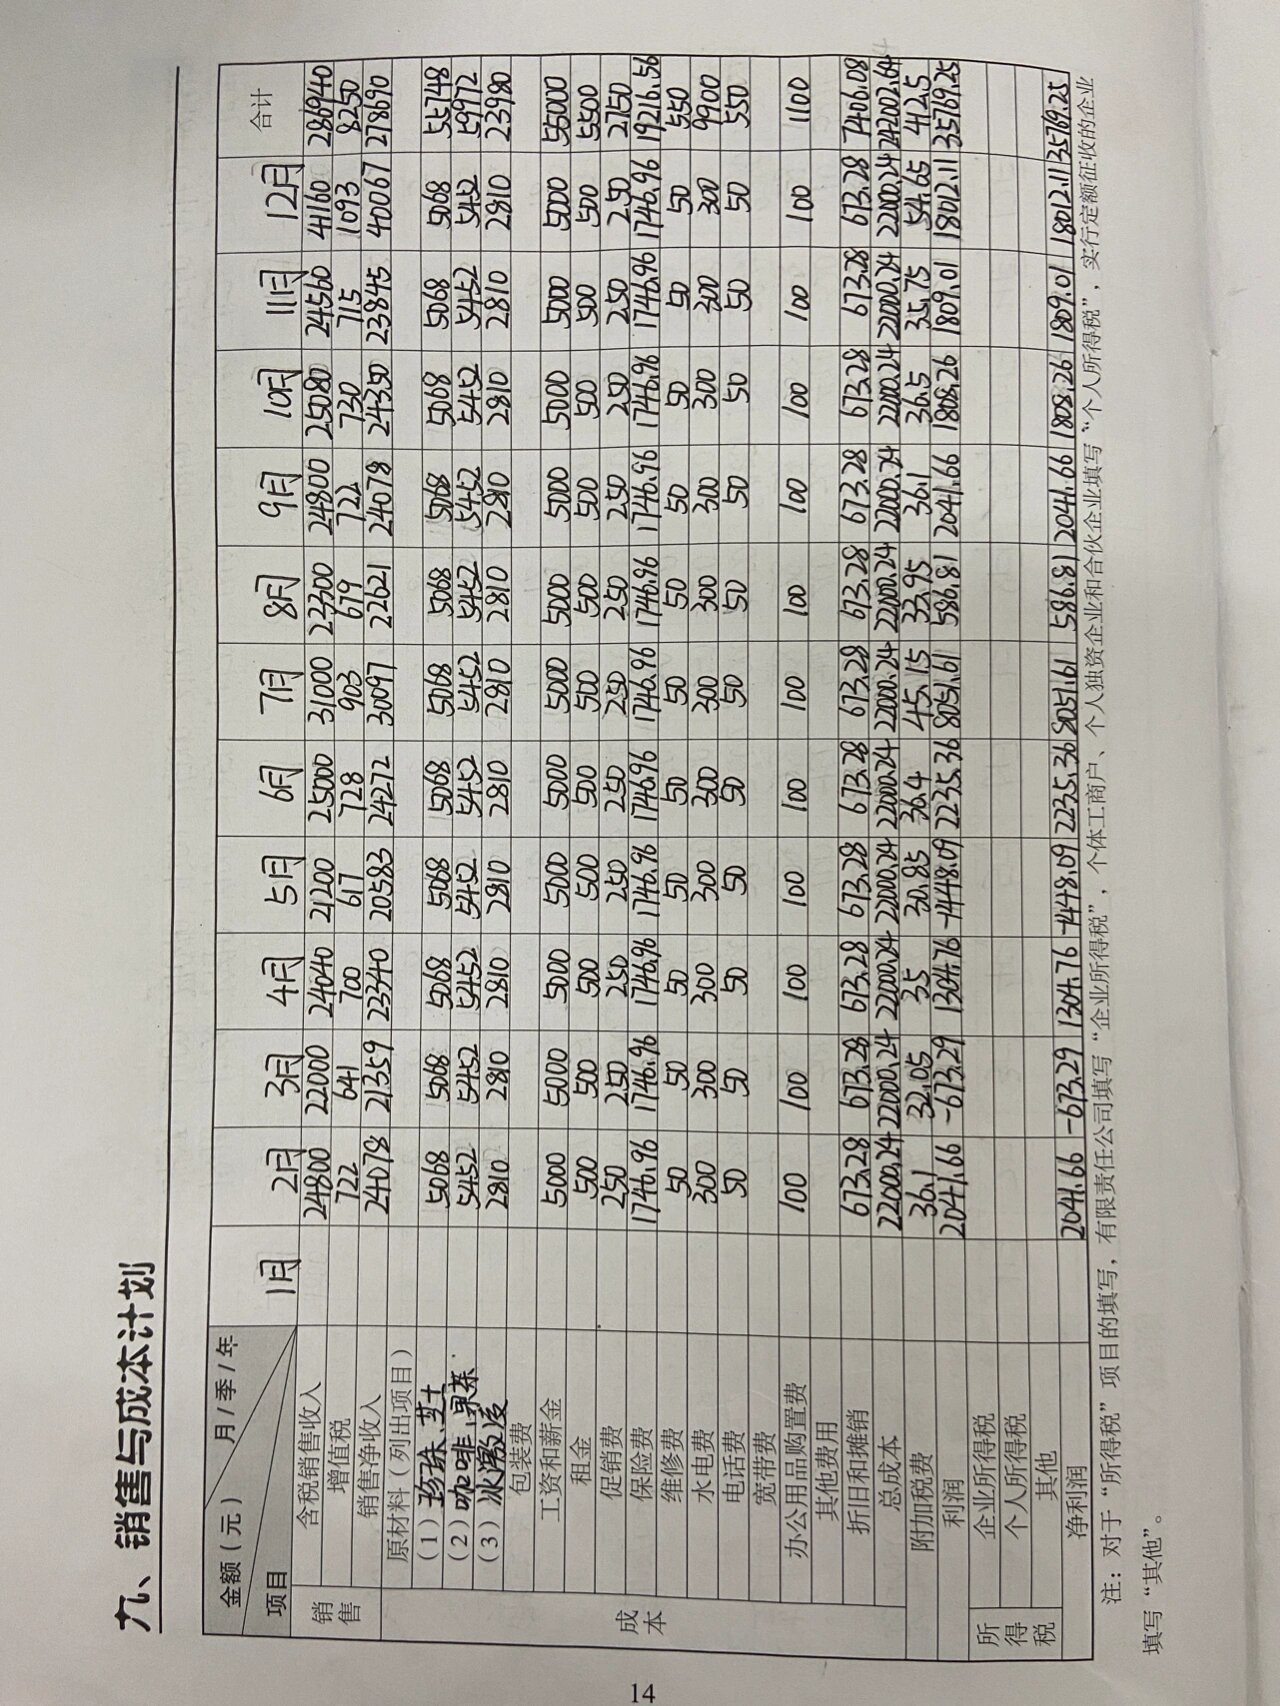 九、销售与成本计划
金额（元） 月/季/年 项目 1月 2月 3月 4月 5月 6月 7月 8月 9月 10月 11月 12月 合计
销售 含税销售收入 24800 22000 24040 21200 25000 31000 23300 24800 25080 24560 41160 286940
增值税 722 641 700 617 728 903 679 722 730 715 1093 8250
销售净收入 24078 21359 23340 20583 24272 30097 22621 24078 24350 23845 40067 278690
成本 原材料（列出项目）
（1）珍珠、芝士 5068 5068 5068 5068 5068 5068 5068 5068 5068 5068 5068 55748
（2）咖啡、果茶 5452 5452 5452 5452 5452 5452 5452 5452 5452 5452 5452 59972
（3）冰激凌 2810 2810 2810 2810 2810 2810 2810 2810 2810 2810 2810 23980
包装费
工资和薪金 5000 5000 5000 5000 5000 5000 5000 5000 5000 5000 5000 55000
租金 500 500 500 500 500 500 500 500 500 500 500 5500
促销费 250 250 250 250 250 250 250 250 250 250 250 2750
保险费 1746.96 1746.96 1746.96 1746.96 1746.96 1746.96 1746.96 1746.96 1746.96 1746.96 1746.96 19216.56
维修费 50 50 50 50 50 50 50 50 50 50 50 550
水电费 300 300 300 300 300 300 300 300 300 300 300 9900
电话费 50 50 50 50 50 50 50 50 50 50 50 550
宽带费
办公用品购置费 100 100 100 100 100 100 100 100 100 100 100 1100
其他费用
折旧和摊销 673.28 673.28 673.28 673.28 673.28 673.28 673.28 673.28 673.28 673.28 673.28 7406.08
总成本 22000.24 22000.24 22000.24 22000.24 22000.24 22000.24 22000.24 22000.24 22000.24 22000.24 22000.24 242002.64
附加税费 36.1 32.05 35 30.85 36.4 45.15 33.95 36.1 36.5 35.75 54.65 412.5
利润 2041.66 -673.29 1304.76 -1448.09 2235.36 8051.61 586.81 2041.66 1808.26 1809.01 18012.11 35769.25
所得税 企业所得税
个人所得税
其他
净利润 2041.66 -673.29 1304.76 -1448.09 2235.36 8051.61 586.81 2041.66 1808.26 1809.01 18012.11 35769.25
注：对于“所得税”项目的填写，有限责任公司填写“企业所得税”，个体工商户、个人独资企业和合伙企业填写“个人所得税”，实行定额征收的企业
填写“其他”。
14